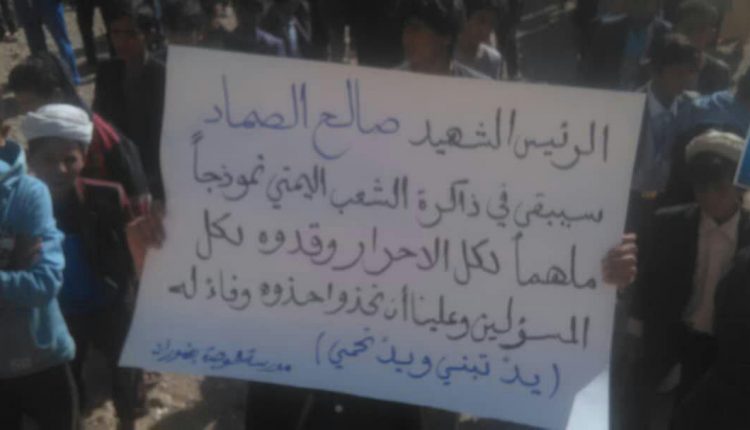 الرئيس الشهيد صالح الصماد
سيبقى في ذاكرة الشعب اليمني نموذجاً
ملهماً لكل الاحرار وقدوه لكل
المسؤلين وعلينا أن نحذوا حذوه وفاءً له
(يد تبني ويد تحمي) مدرسة الوحدة